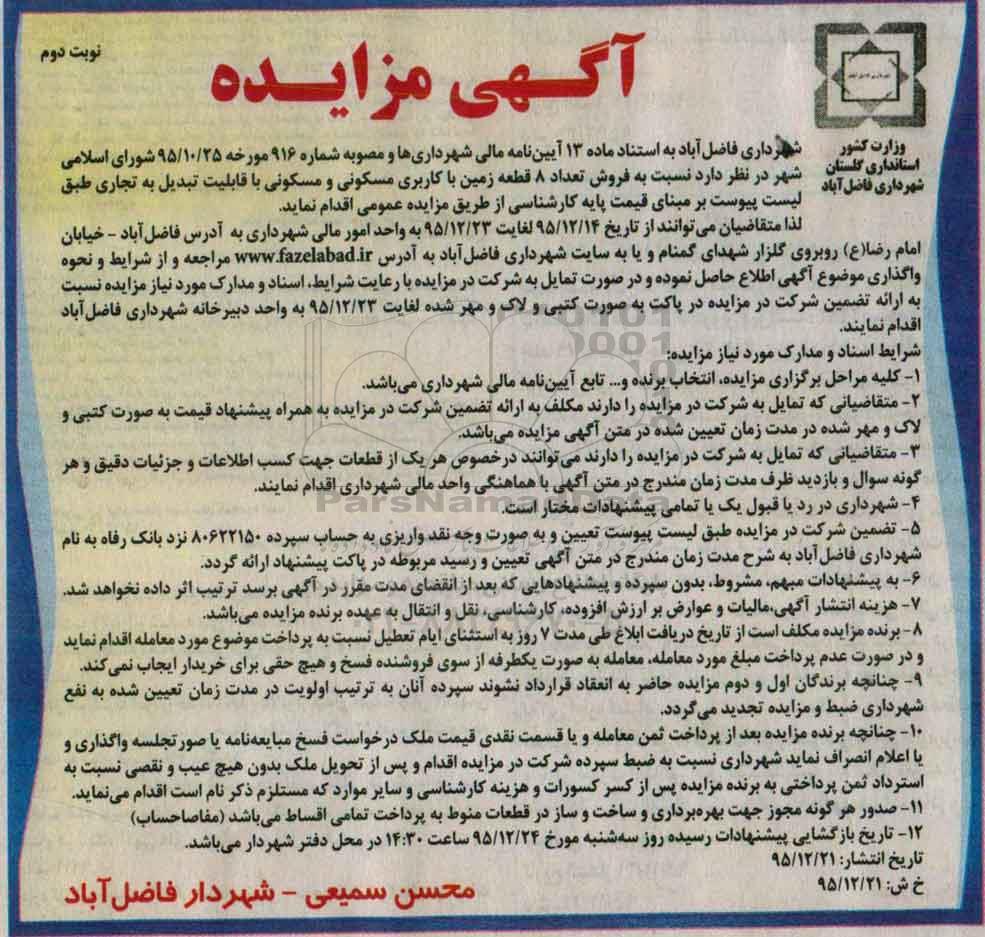 نوبت دوم
آگهی مزایده
وزارت کشور
استانداری گلستان
شهرداری فاضل‌آباد
شهرداری فاضل‌آباد به استناد ماده ۱۳ آیین‌نامه مالی شهرداری‌ها و مصوبه شماره ۹۱۶ مورخه ۹۵/۱۰/۲۵ شورای اسلامی
شهر در نظر دارد نسبت به فروش تعداد ۸ قطعه زمین با کاربری مسکونی و مسکونی با قابلیت تبدیل به تجاری طبق
لیست پیوست بر مبنای قیمت پایه کارشناسی از طریق مزایده عمومی اقدام نماید.
لذا متقاضیان می‌توانند از تاریخ ۹۵/۱۲/۱۴ لغایت ۹۵/۱۲/۲۳ به واحد امور مالی شهرداری به آدرس فاضل‌آباد - خیابان
امام رضا(ع) روبروی گلزار شهدای گمنام و یا به سایت شهرداری فاضل‌آباد به آدرس www.fazelabad.ir مراجعه و از شرایط و نحوه
واگذاری موضوع آگهی اطلاع حاصل نموده و در صورت تمایل به شرکت در مزایده با رعایت شرایط، اسناد و مدارک مورد نیاز مزایده نسبت
به ارائه تضمین شرکت در مزایده در پاکت به صورت کتبی و لاک و مهر شده لغایت ۹۵/۱۲/۲۳ به واحد دبیرخانه شهرداری فاضل‌آباد
اقدام نمایند.
شرایط اسناد و مدارک مورد نیاز مزایده:
۱- کلیه مراحل برگزاری مزایده، انتخاب برنده و... تابع آیین‌نامه مالی شهرداری می‌باشد.
۲- متقاضیانی که تمایل به شرکت در مزایده را دارند مکلف به ارائه تضمین شرکت در مزایده به همراه پیشنهاد قیمت به صورت کتبی و
لاک و مهر شده در مدت زمان تعیین شده در متن آگهی مزایده می‌باشد.
۳- متقاضیانی که تمایل به شرکت در مزایده را دارند می‌توانند درخصوص هر یک از قطعات جهت کسب اطلاعات و جزئیات دقیق و هر
گونه سوال و بازدید ظرف مدت زمان مندرج در متن آگهی با هماهنگی واحد مالی شهرداری اقدام نمایند.
۴- شهرداری در رد یا قبول یک یا تمامی پیشنهادات مختار است.
ParsNamadData
۵- تضمین شرکت در مزایده طبق لیست پیوست تعیین و به صورت وجه نقد واریزی به حساب سپرده ۸۰۶۲۲۱۵۰ نزد بانک رفاه به نام
شهرداری فاضل‌آباد به شرح مدت زمان مندرج در متن آگهی تعیین و رسید مربوطه در پاکت پیشنهاد ارائه گردد.
۶- به پیشنهادات مبهم، مشروط، بدون سپرده و پیشنهادهایی که بعد از انقضای مدت مقرر در آگهی برسد ترتیب اثر داده نخواهد شد.
۷- هزینه انتشار آگهی،مالیات و عوارض بر ارزش افزوده، کارشناسی، نقل و انتقال به عهده برنده مزایده می‌باشد.
۸- برنده مزایده مکلف است از تاریخ دریافت ابلاغ طی مدت ۷ روز به استثنای ایام تعطیل نسبت به پرداخت موضوع مورد معامله اقدام نماید
و در صورت عدم پرداخت مبلغ مورد معامله، معامله به صورت یکطرفه از سوی فروشنده فسخ و هیچ حقی برای خریدار ایجاب نمی‌کند.
۹- چنانچه برندگان اول و دوم مزایده حاضر به انعقاد قرارداد نشوند سپرده آنان به ترتیب اولویت در مدت زمان تعیین شده به نفع
شهرداری ضبط و مزایده تجدید می‌گردد.
۱۰- چنانچه برنده مزایده بعد از پرداخت ثمن معامله و یا قسمت نقدی قیمت ملک درخواست فسخ مبایعه‌نامه یا صورتجلسه واگذاری و
یا اعلام انصراف نماید شهرداری نسبت به ضبط سپرده شرکت در مزایده اقدام و پس از تحویل ملک بدون هیچ عیب و نقصی نسبت به
استرداد ثمن پرداختی به برنده مزایده پس از کسر کسورات و هزینه کارشناسی و سایر موارد که مستلزم ذکر نام است اقدام می‌نماید.
۱۱- صدور هر گونه مجوز جهت بهره‌برداری و ساخت و ساز در قطعات منوط به پرداخت تمامی اقساط می‌باشد (مفاصاحساب)
۱۲- تاریخ بازگشایی پیشنهادات رسیده روز سه‌شنبه مورخ ۹۵/۱۲/۲۴ ساعت ۱۴:۳۰ در محل دفتر شهردار می‌باشد.
تاریخ انتشار: ۹۵/۱۲/۲۱
خ ش: ۹۵/۱۲/۲۱
محسن سمیعی - شهردار فاضل‌آباد